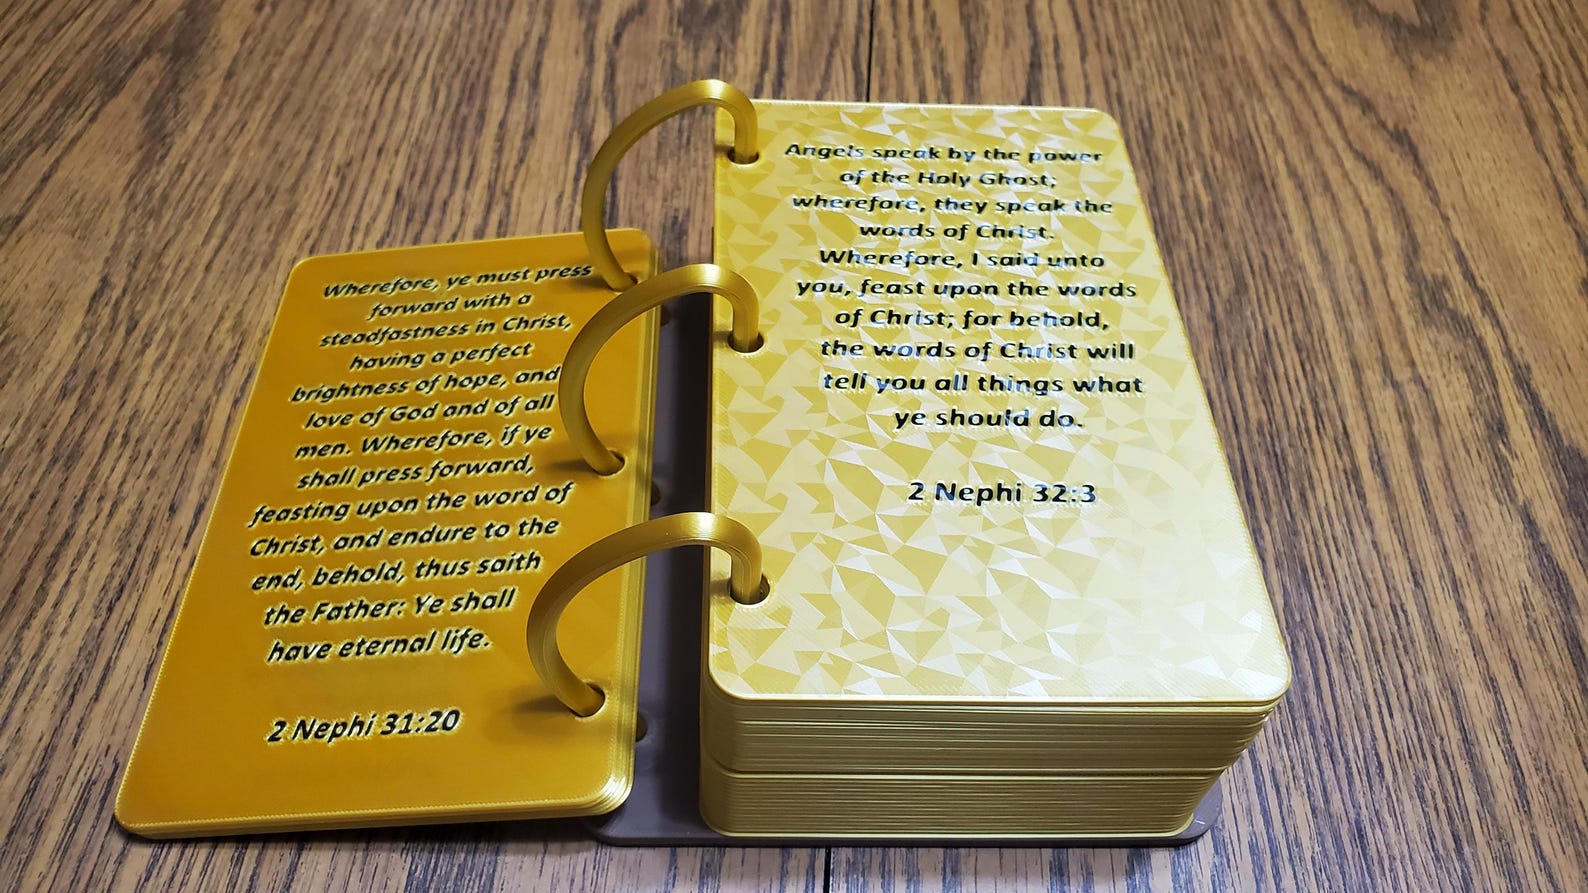 Wherefore, ye must press
forward with a
steadfastness in Christ,
having a perfect
brightness of hope, and
love of God and of all
men. Wherefore, if ye
shall press forward,
feasting upon the word of
Christ, and endure to the
end, behold, thus saith
the Father: Ye shall
have eternal life.
2 Nephi 31:20
Angels speak by the power
of the Holy Ghost;
wherefore, they speak the
words of Christ.
Wherefore, I said unto
you, feast upon the words
of Christ; for behold,
the words of Christ will
tell you all things what
ye should do.
2 Nephi 32:3